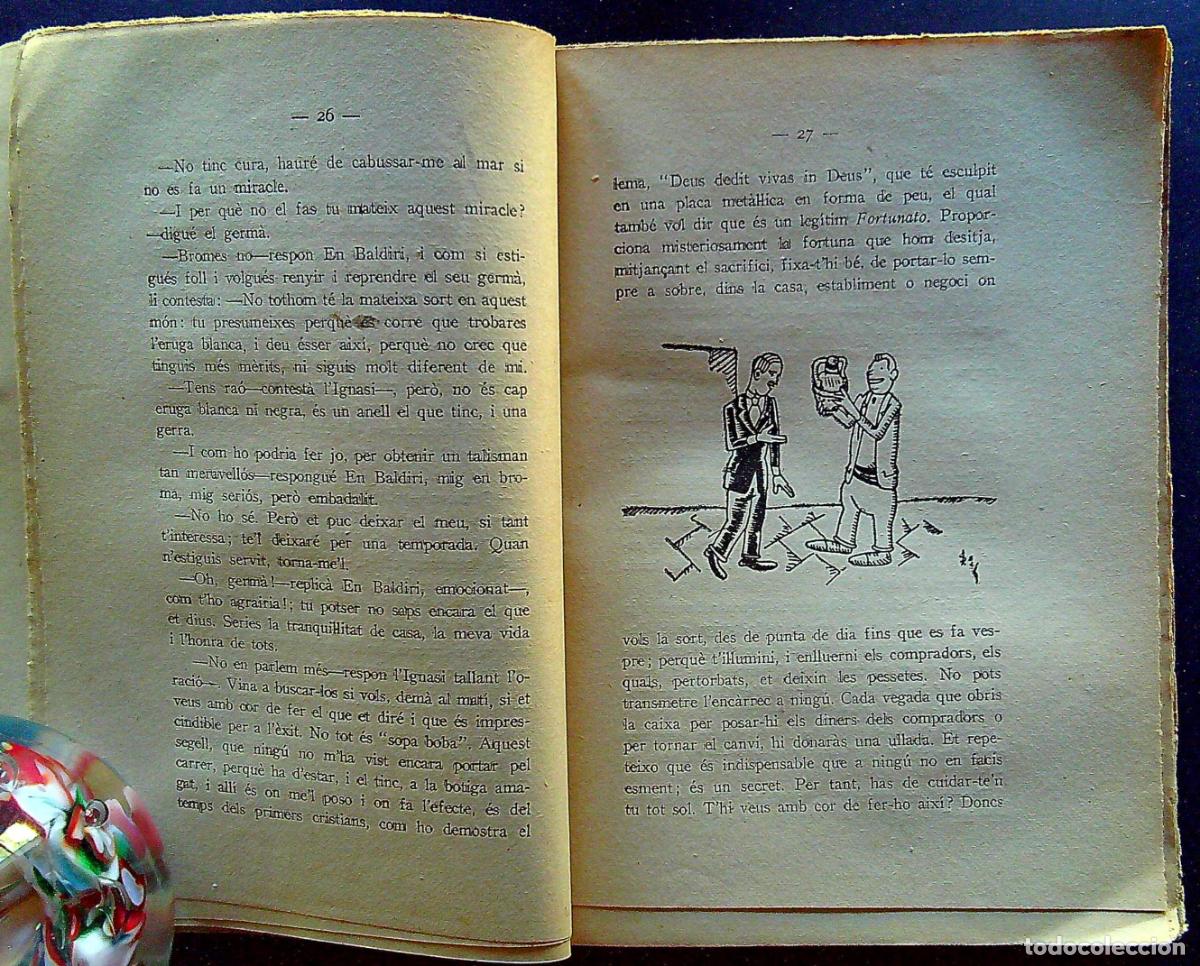 — 26 —
—No tinc cura, hauré de cabussar-me al mar si
no es fa un miracle.
—I per què no el fas tu mateix aquest miracle?
—digué el germà.
—Bromes no—respon En Baldiri, i com si esti-
gués foll i volgués renyir i reprendre el seu germà,
li contesta: —No tothom té la mateixa sort en aquest
món: tu presumeixes perquè es corre que trobares
l'eruga blanca, i deu ésser així, perquè no crec que
tinguis més mèrits, ni siguis molt diferent de mi.
—Tens raó—contestà l'Ignasi—, però, no és cap
eruga blanca ni negra, és un anell el que tinc, i una
gerra.
—I com ho podria fer jo, per obtenir un talisman
tan meravellós—respongué En Baldiri, mig en bro-
ma, mig seriós, però embadalit.
—No ho sé. Però et puc deixar el meu, si tant
t'interessa; te'l deixaré per una temporada. Quan
n'estiguis servit, torna-me'l.
—Oh, germà!—replicà En Baldiri, emocionat—,
com t'ho agrairia!; tu potser no saps encara el que
et dius. Series la tranquil·litat de casa, la meva vida
i l'honra de tots.
—No en parlem més—respon l'Ignasi tallant l'o-
ració—. Vina a buscar-los si vols, demà al matí, si et
veus amb cor de fer el que et diré i que és impres-
cindible per a l'èxit. No tot és "sopa boba". Aquest
segell, que ningú no m'ha vist encara portar pel
carrer, perquè ha d'estar, i el tinc, a la botiga ama-
gat, i allí és on me'l poso i on fa l'efecte, és del
temps dels primers cristians, com ho demostra el
— 27 —
lema, "Deus dedit vivas in Deus", que té esculpit
en una placa metàl·lica en forma de peu, el qual
també vol dir que és un legítim Fortunato. Propor-
ciona misteriosament la fortuna que hom desitja,
mitjançant el sacrifici, fixa-t'hi bé, de portar-lo sem-
pre a sobre, dins la casa, establiment o negoci on
vols la sort, des de punta de dia fins que es fa ves-
pre; perquè t'il·lumini, i enlluerni els compradors, els
quals, pertorbats, et deixin les pessetes. No pots
transmetre l'encàrrec a ningú. Cada vegada que obris
la caixa per posar-hi els diners dels compradors o
per tornar el canvi, hi donaràs una ullada. Et repe-
teixo que és indispensable que a ningú no en facis
esment; és un secret. Per tant, has de cuidar-te'n
tu tot sol. T'hi veus amb cor de fer-ho així? Doncs
todocoleccion